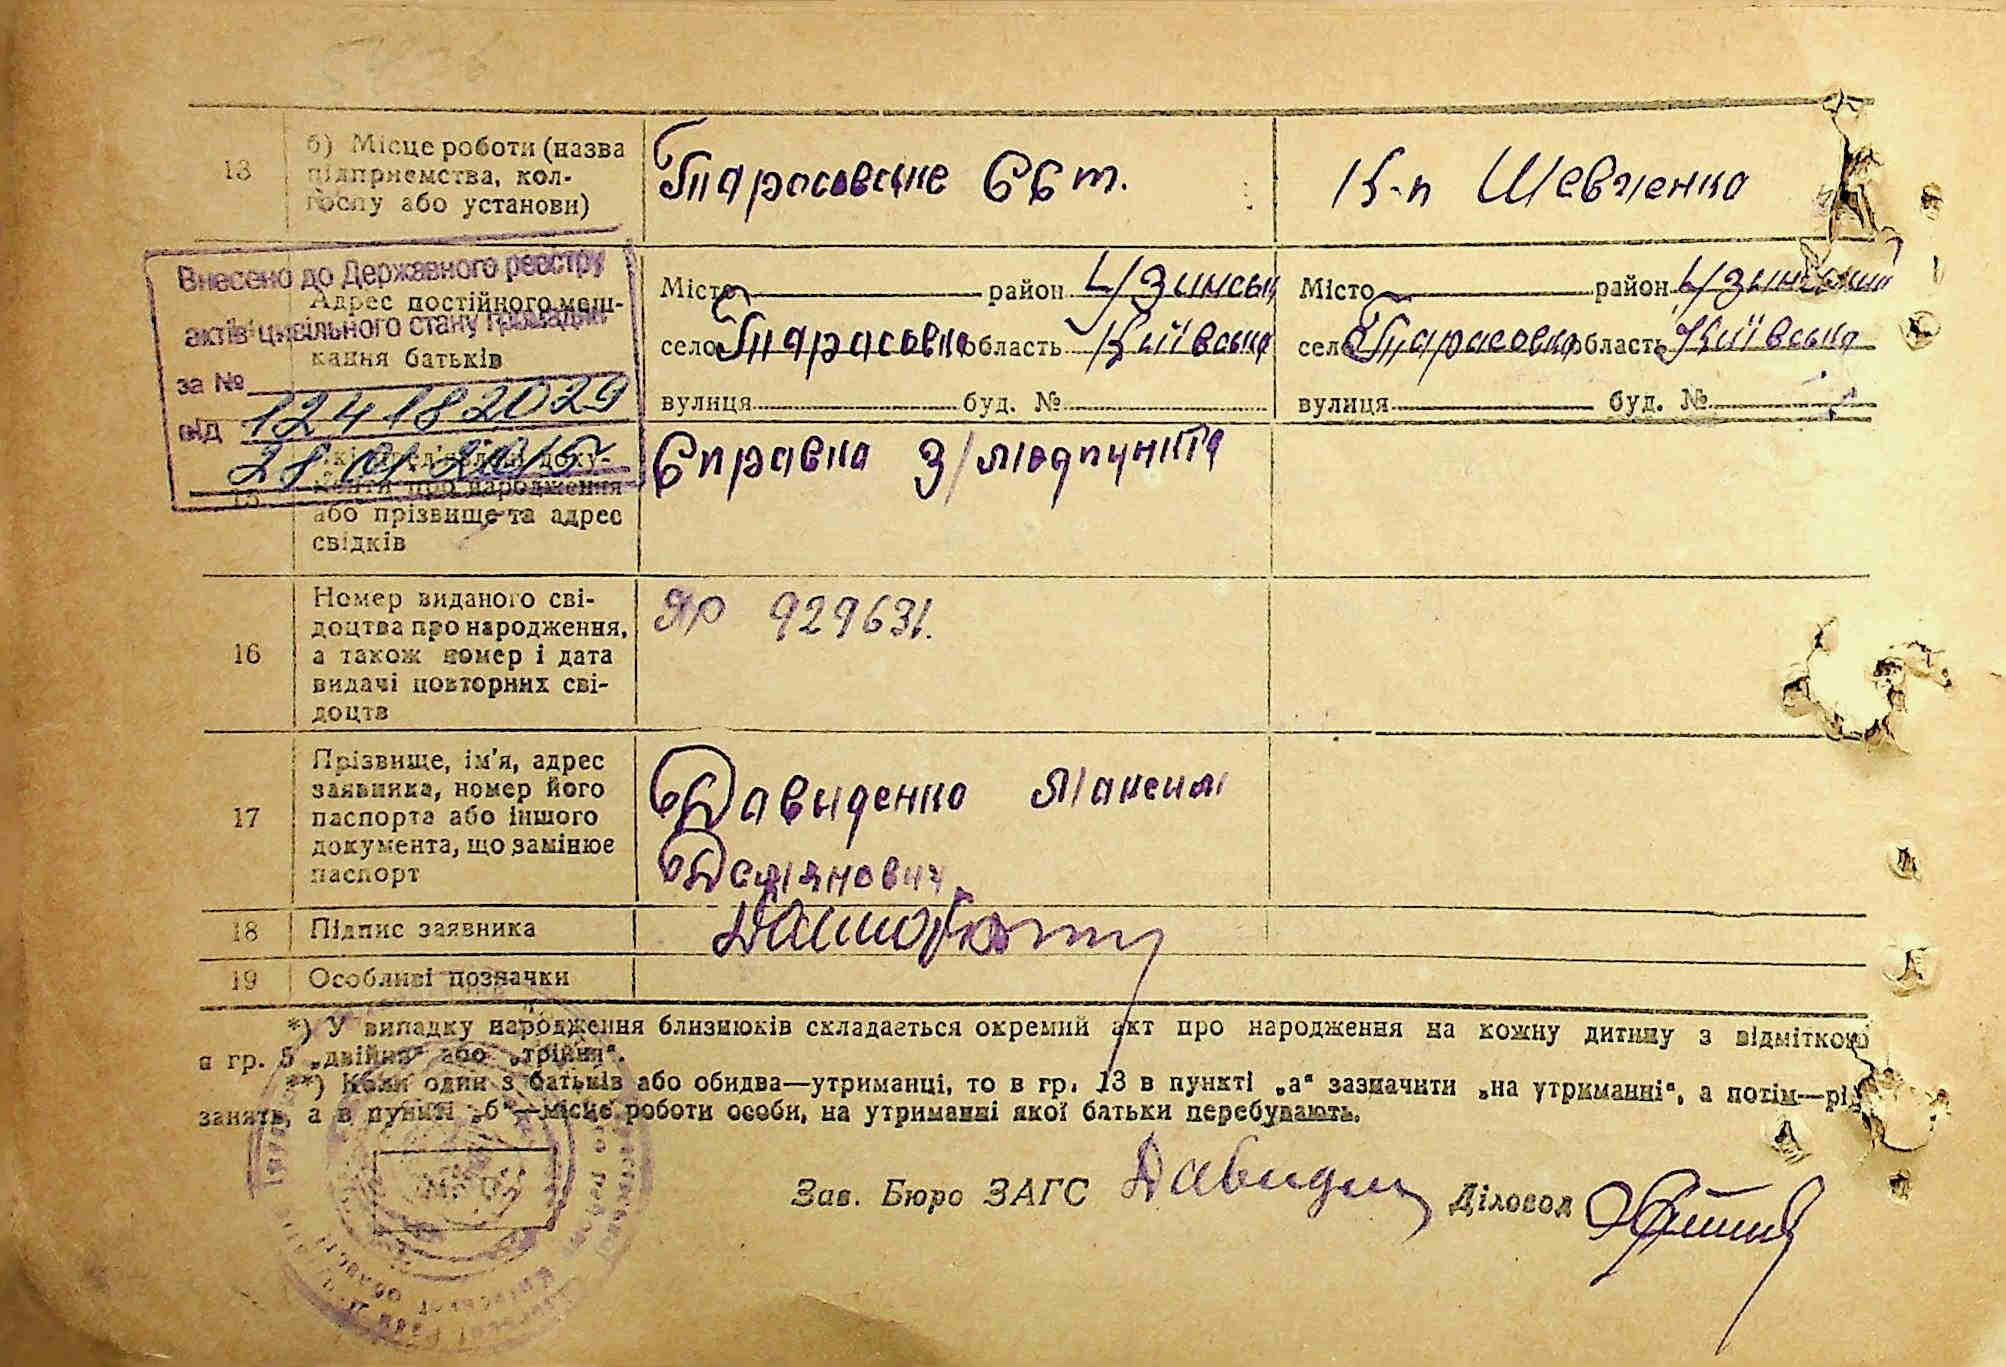 13
б) Місце роботи (назва
підприємства, кол-
госпу або установи)
Тарасовське ССт.
К-п Шевченка
Внесено до Державного реєстру
актів цивільного стану громадян
за №
12418 2029
від
28 01 2015
Адрес постійного меш-
кання батьків
Місто район Узинськ
село Тарасовка область Київська
вулиця буд. №
Місто район Узинський
село Тарасовка область Київська
вулиця буд. №
15
про народження
або прізвище та адрес
свідків
Справка з/медпункта
16
Номер виданого сві-
доцтва про народження,
а також номер і дата
видачі повторних сві-
доцтв
ЯР 929631.
17
Прізвище, ім'я, адрес
заявника, номер його
паспорта або іншого
документа, що замінює
паспорт
Давиденко Максим
Демянович
18
Підпис заявника
19
Особливі позначки
*) У випадку народження близнюків складається окремий акт про народження на кожну дитину з відміткою
в гр. 5 „двійня“ або „трійня“.
**) Коли один з батьків або обидва—утриманці, то в гр. 13 в пункті „а“ зазначити „на утриманні“, а потім—рід
занять, а в пункті „б“—місце роботи особи, на утриманні якої батьки перебувають.
Зав. Бюро ЗАГС
Діловод